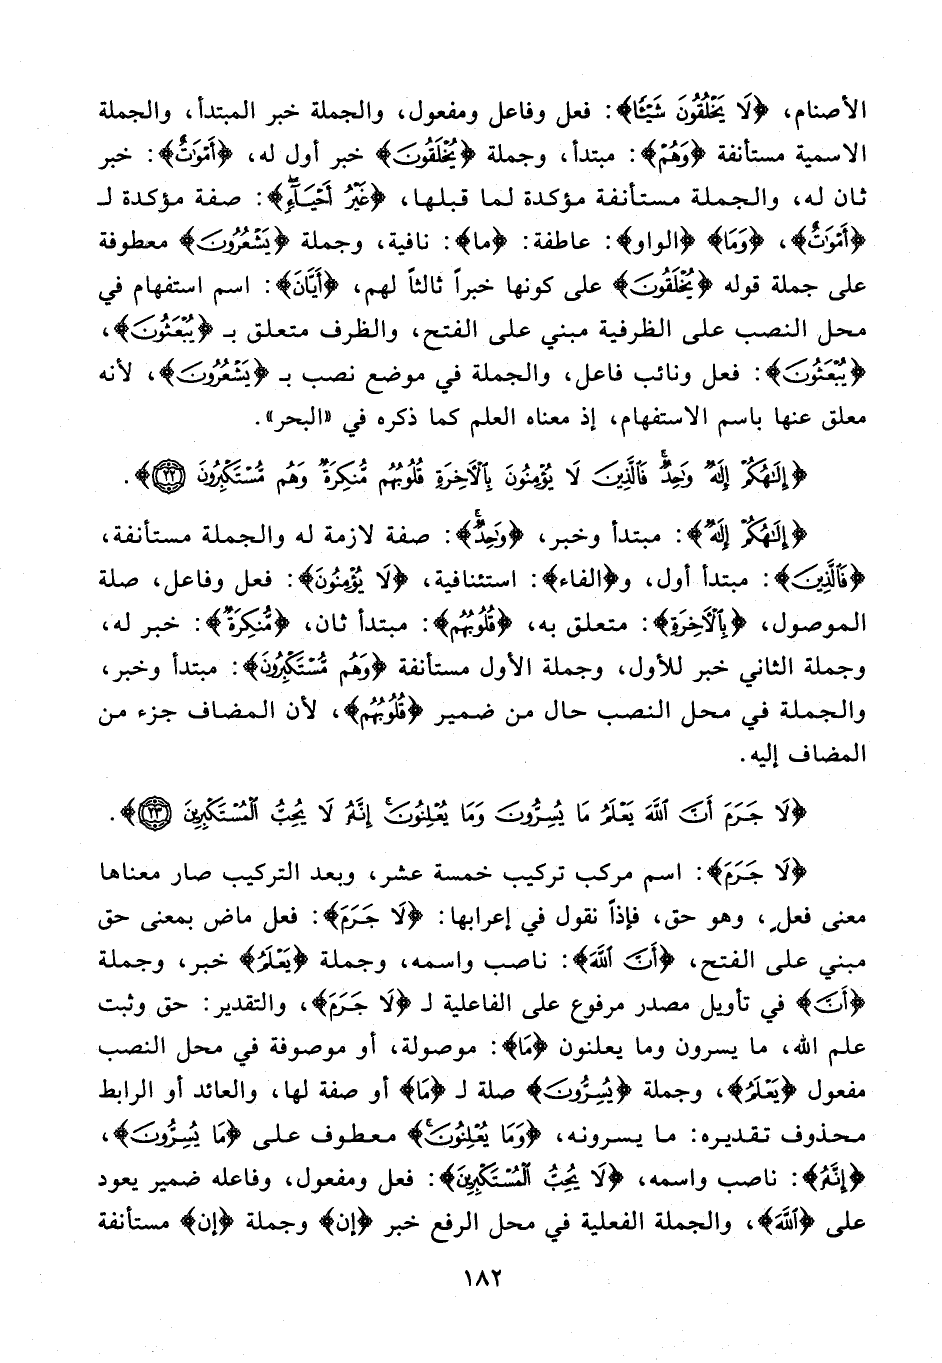 الأصنام، ﴿لَا يَخْلُقُونَ شَيْئًا﴾: فعل وفاعل ومفعول، والجملة خبر المبتدأ، والجملة
الاسمية مستأنفة ﴿وَهُمْ﴾: مبتدأ، وجملة ﴿يُخْلَقُونَ﴾ خبر أول له، ﴿أَمْوَٰتٌ﴾: خبر
ثان له، والجملة مستأنفة مؤكدة لما قبلها، ﴿غَيْرُ أَحْيَآءٍ﴾: صفة مؤكدة لـ
﴿أَمْوَٰتٌ﴾، ﴿وَمَا﴾ ﴿الواو﴾: عاطفة: ﴿ما﴾: نافية، وجملة ﴿يَشْعُرُونَ﴾ معطوفة
على جملة قوله ﴿يُخْلَقُونَ﴾ على كونها خبراً ثالثاً لهم، ﴿أَيَّانَ﴾: اسم استفهام في
محل النصب على الظرفية مبني على الفتح، والظرف متعلق بـ ﴿يُبْعَثُونَ﴾،
﴿يُبْعَثُونَ﴾: فعل ونائب فاعل، والجملة في موضع نصب بـ ﴿يَشْعُرُونَ﴾، لأنه
معلق عنها باسم الاستفهام، إذ معناه العلم كما ذكره في «البحر».
﴿إِلَٰهُكُمْ إِلَٰهٌ وَٰحِدٌ ۚ فَٱلَّذِينَ لَا يُؤْمِنُونَ بِٱلْآخِرَةِ قُلُوبُهُم مُّنكِرَةٌ وَهُم مُّسْتَكْبِرُونَ ۝٢٢﴾.
﴿إِلَٰهُكُمْ إِلَٰهٌ﴾: مبتدأ وخبر، ﴿وَٰحِدٌ ۚ﴾: صفة لازمة له والجملة مستأنفة،
﴿فَٱلَّذِينَ﴾: مبتدأ أول، و﴿الفاء﴾: استئنافية، ﴿لَا يُؤْمِنُونَ﴾: فعل وفاعل، صلة
الموصول، ﴿بِٱلْآخِرَةِ﴾: متعلق به، ﴿قُلُوبُهُم﴾: مبتدأ ثان، ﴿مُّنكِرَةٌ﴾: خبر له،
وجملة الثاني خبر للأول، وجملة الأول مستأنفة ﴿وَهُم مُّسْتَكْبِرُونَ﴾: مبتدأ وخبر،
والجملة في محل النصب حال من ضمير ﴿قُلُوبُهُم﴾، لأن المضاف جزء من
المضاف إليه.
﴿لَا جَرَمَ أَنَّ ٱللَّهَ يَعْلَمُ مَا يُسِرُّونَ وَمَا يُعْلِنُونَ ۚ إِنَّهُۥ لَا يُحِبُّ ٱلْمُسْتَكْبِرِينَ ۝٢٣﴾.
﴿لَا جَرَمَ﴾: اسم مركب تركيب خمسة عشر، وبعد التركيب صار معناها
معنى فعلٍ، وهو حق، فإذاً نقول في إعرابها: ﴿لَا جَرَمَ﴾: فعل ماض بمعنى حق
مبني على الفتح، ﴿أَنَّ ٱللَّهَ﴾: ناصب واسمه، وجملة ﴿يَعْلَمُ﴾ خبر، وجملة
﴿أَنَّ﴾ في تأويل مصدر مرفوع على الفاعلية لـ ﴿لَا جَرَمَ﴾، والتقدير: حق وثبت
علم الله، ما يسرون وما يعلنون ﴿مَا﴾: موصولة، أو موصوفة في محل النصب
مفعول ﴿يَعْلَمُ﴾، وجملة ﴿يُسِرُّونَ﴾ صلة لـ ﴿مَا﴾ أو صفة لها، والعائد أو الرابط
محذوف تقديره: ما يسرونه، ﴿وَمَا يُعْلِنُونَ ۚ﴾ معطوف على ﴿مَا يُسِرُّونَ﴾،
﴿إِنَّهُۥ﴾: ناصب واسمه، ﴿لَا يُحِبُّ ٱلْمُسْتَكْبِرِينَ﴾: فعل ومفعول، وفاعله ضمير يعود
على ﴿ٱللَّهَ﴾، والجملة الفعلية في محل الرفع خبر ﴿إن﴾ وجملة ﴿إن﴾ مستأنفة
١٨٢